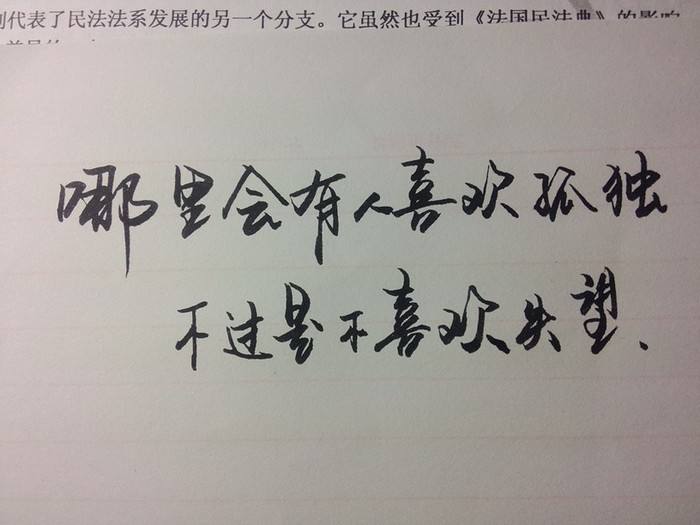 则代表了民法法系发展的另一个分支。它虽然也受到《法国民法典》的影响
哪里会有人喜欢孤独
不过是不喜欢失望、